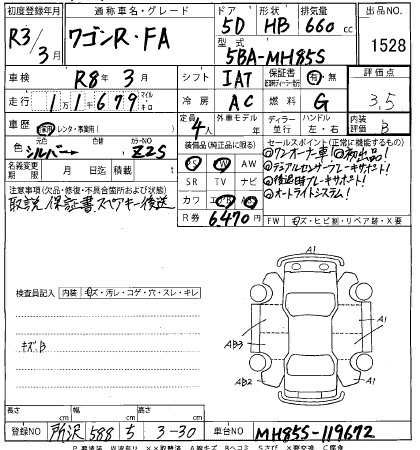 初度登録年月 通称車名・グレード ドア 形状 排気量 出品NO
R3/3月 ワゴンR・FA 5D HB 660cc 1528
型式 5BA-MH85S
車検 R8年3月 シフト IAT 保証書 有・無 評価点
走行 1 1 1 6 7 9 マイル キロ 冷房 AC 燃料 G 3.5
車歴 自家用・レンタ・事業用( ) 定員 4人 外車モデル 年 ディーラー 並行 ハンドル 左・右 内装評価 B
色 元色 シルバー 色替 カラーNO Z2S
装備品(純正品に限る) セールスポイント(正常に機能するもの)
PS PW AW ◎ワンオーナー車! ◎初出品!
名義変更期限 月 日迄 積載 t ◎デュアルセンサーブレーキサポート!
SR TV ナビ ◎後退時ブレーキサポート!
注意事項(欠品・修復・不具合箇所および状態) カワ エアB ABS ◎オートライトシステム!
取説、保証書、スペアキー後送
R券 6,470円 FW キズ・ヒビ割・リペア跡・X要
検査員記入 内装 キズ・汚レ・コゲ・穴・スレ・キレ
キズB
A1
A1
AB3
AB2
A1
長さ cm 幅 cm 高さ cm
登録NO 所沢 588 ち 3-30 車台NO MH85S-119672